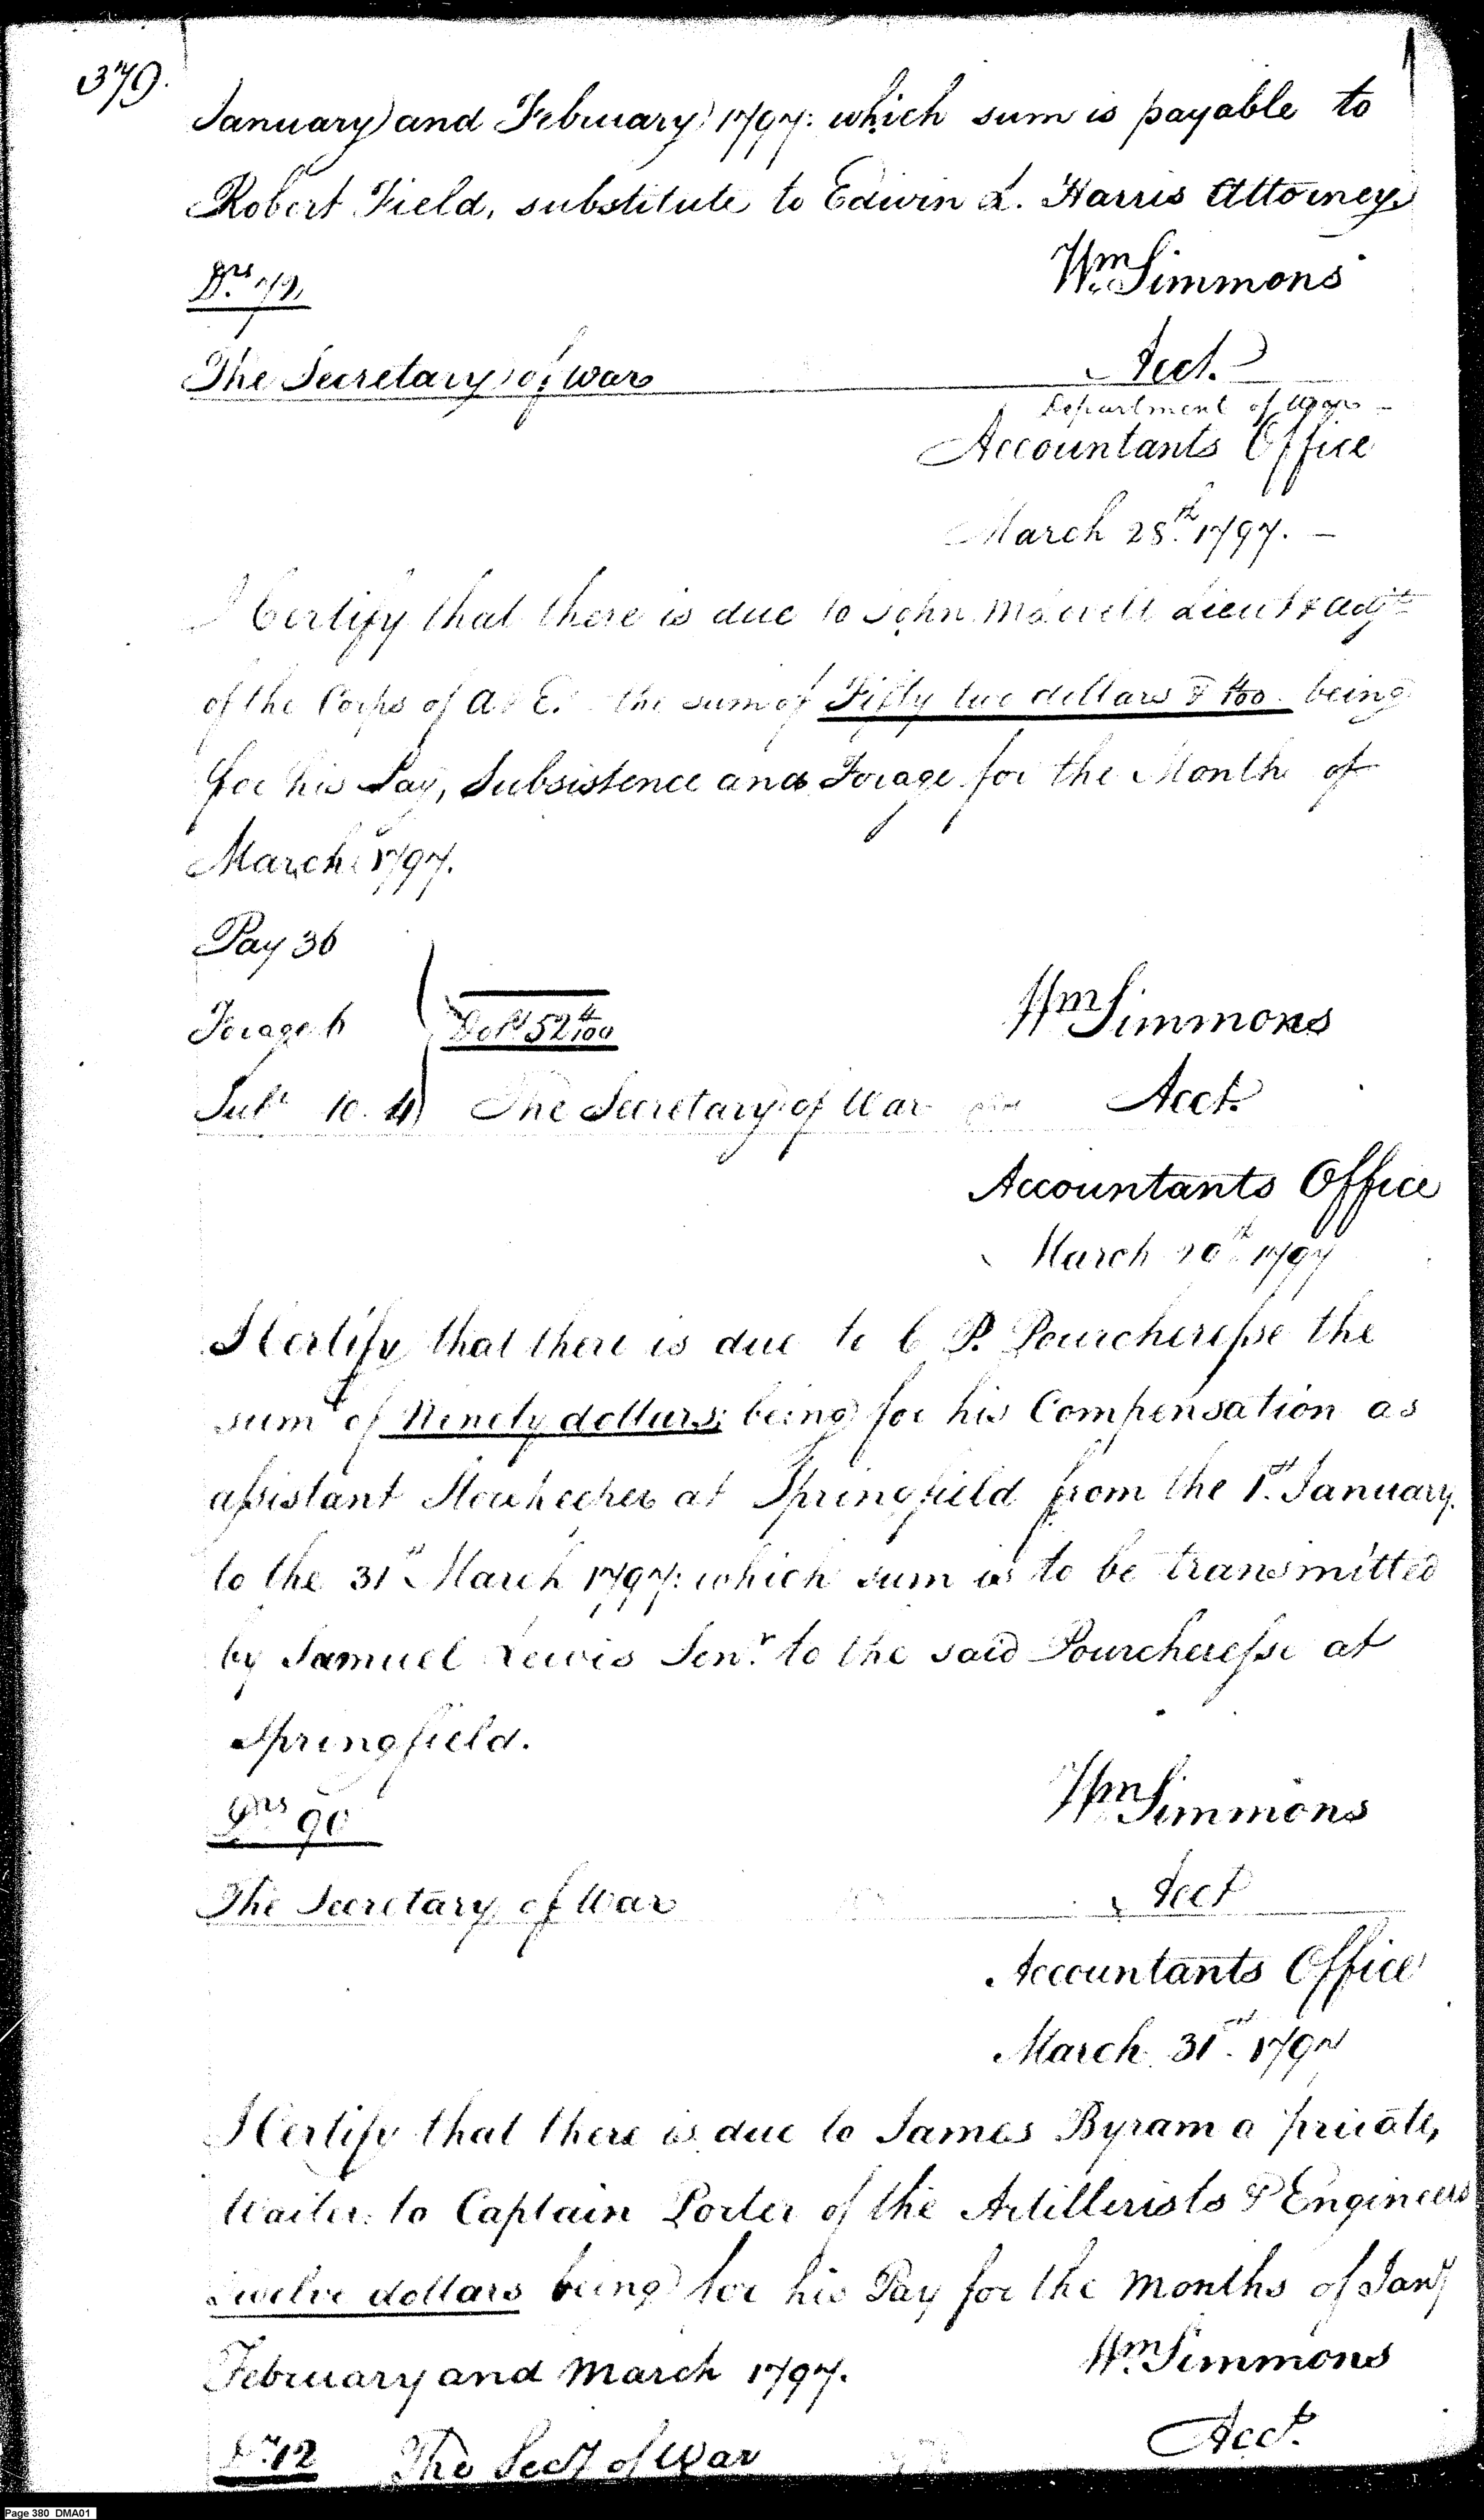 379.
January and February 1797: which sum is payable to
Robert Field, substitute to Edwin L. Harris Attorney.
Wm Simmons
Drs 72,
The Secretary of War
Acct.
Department of War
Accountants Office
March 28th 1797.
I Certify that there is due to John Lieut & adjt
of the Corps of A & E. the sum of Fifty two dollars & 4/100 being
for his Pay, Subsistence and Forage for the Month of
March 1797.
Pay 36
Forage 6
Dolrs 52 4/100
Wm Simmons
Subt 10.4
The Secretary of War
Acct.
Accountants Office
March 1797
I Certify that there is due to C P. Pourcheresse the
sum of Ninety dollars; being for his Compensation as
assistant Storekeeper at Springfield from the 1st January
to the 31st March 1797: which sum is to be transmitted
by Samuel Lewis Senr to the said Pourcheresse at
Springfield.
Wm Simmons
Drs 90
The Secretary of War
Acct
Accountants Office
March 31st 1797
I Certify that there is due to James Byram a private,
Waiter to Captain Porter of the Artillerists & Engineers
Twelve dollars being for his Pay for the Months of Jany
February and March 1797.
Wm Simmons
Drs 12
The Secy of War
Acct.
Page 380 DMA01